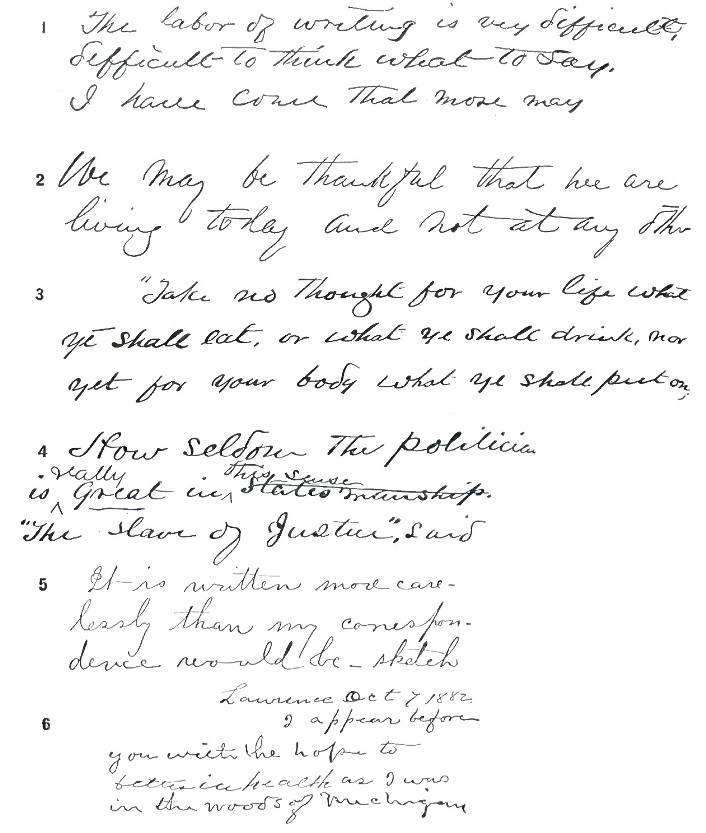 1 The labor of writing is very difficult,
difficult to think what to say.
I have come that more may
2 We may be thankful that we are
living today and not at any other
3 "Take no thought for your life what
ye shall eat, or what ye shall drink, nor
yet for your body what ye shall put on,
4 How seldom the politician
really this sense
is ^ Great in ^ Statesmanship.
"The slave of Justice", said
5 It is written more care-
lessly than my correspon-
dence would be - sketch
Lawrence Oct 7 1882
6 I appear before
you with the hope to
better in health as I was
in the woods of Michigan